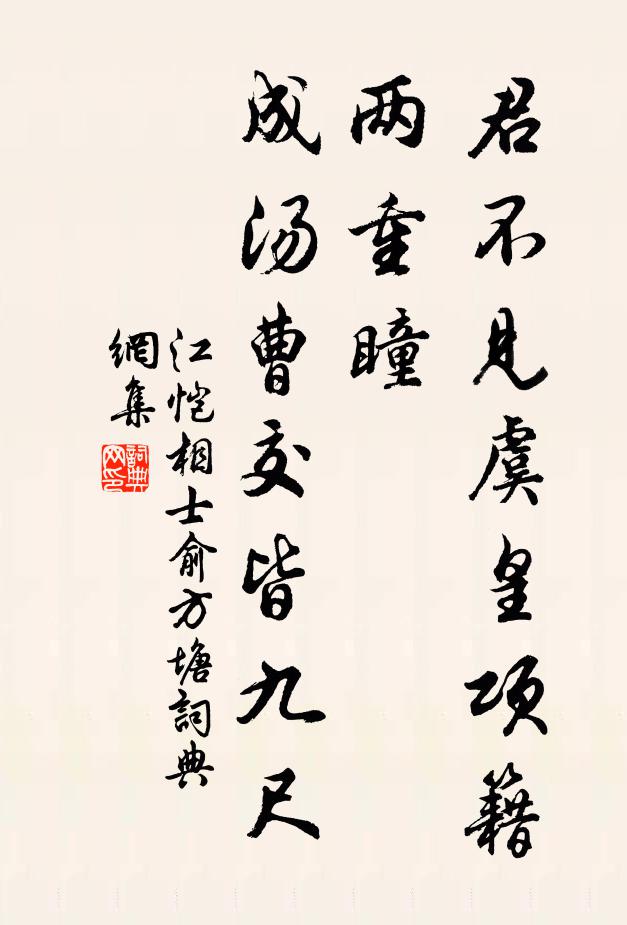 君不见虞皇项籍
两重瞳
成汤曹交皆九尺
江恺相士俞方塘詞典
網集
詞典
网印